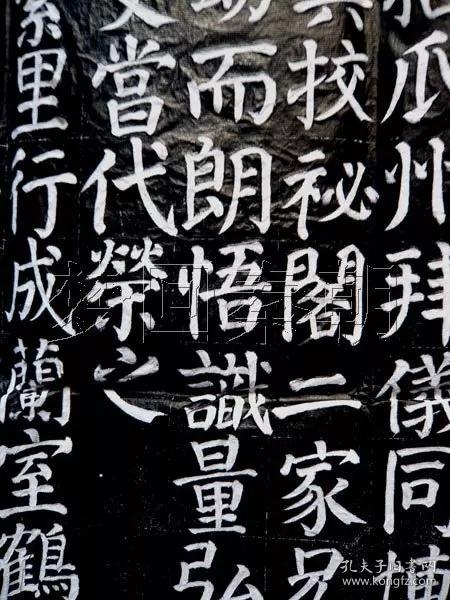 瓜州拜儀同
挍祕閣二家兄
而朗悟識量弘
當代榮之
里行成蘭室鶴
孔夫子旧书网
www.kongfz.com